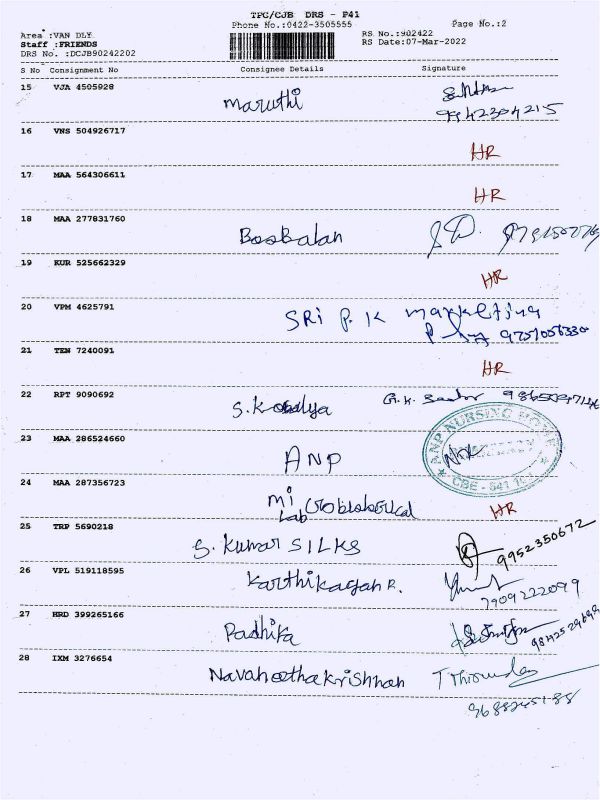 TPC/CJB DRS - P41
Phone No.:0422-3505555
Page No.:2
Area :VAN DLY
Staff :FRIENDS
DRS No. :DCJB90242202
RS No.:902422
RS Date:07-Mar-2022
S No Consignment No Consignee Details Signature
15 VJA 4505928 Maruthi
9942304215
16 VNS 504926717
HR
17 MAA 564306611
HR
18 MAA 277831760
19 KUR 525662329
HR
20 VPM 4625791
SRI P. K Marketing
21 TEN 7240091
HR
22 RPT 9090692
23 MAA 286524660
ANP
ANP NURSING HOME
CBE - 641
24 MAA 287356723
Lab
HR
25 TRP 5690218
S. Kumar SILKS
9952350672
26 VPL 519118595
Karthikayan R.
7909222099
27 HRD 399265166
Padhika
28 IXM 3276654
Navaneethakrishnan